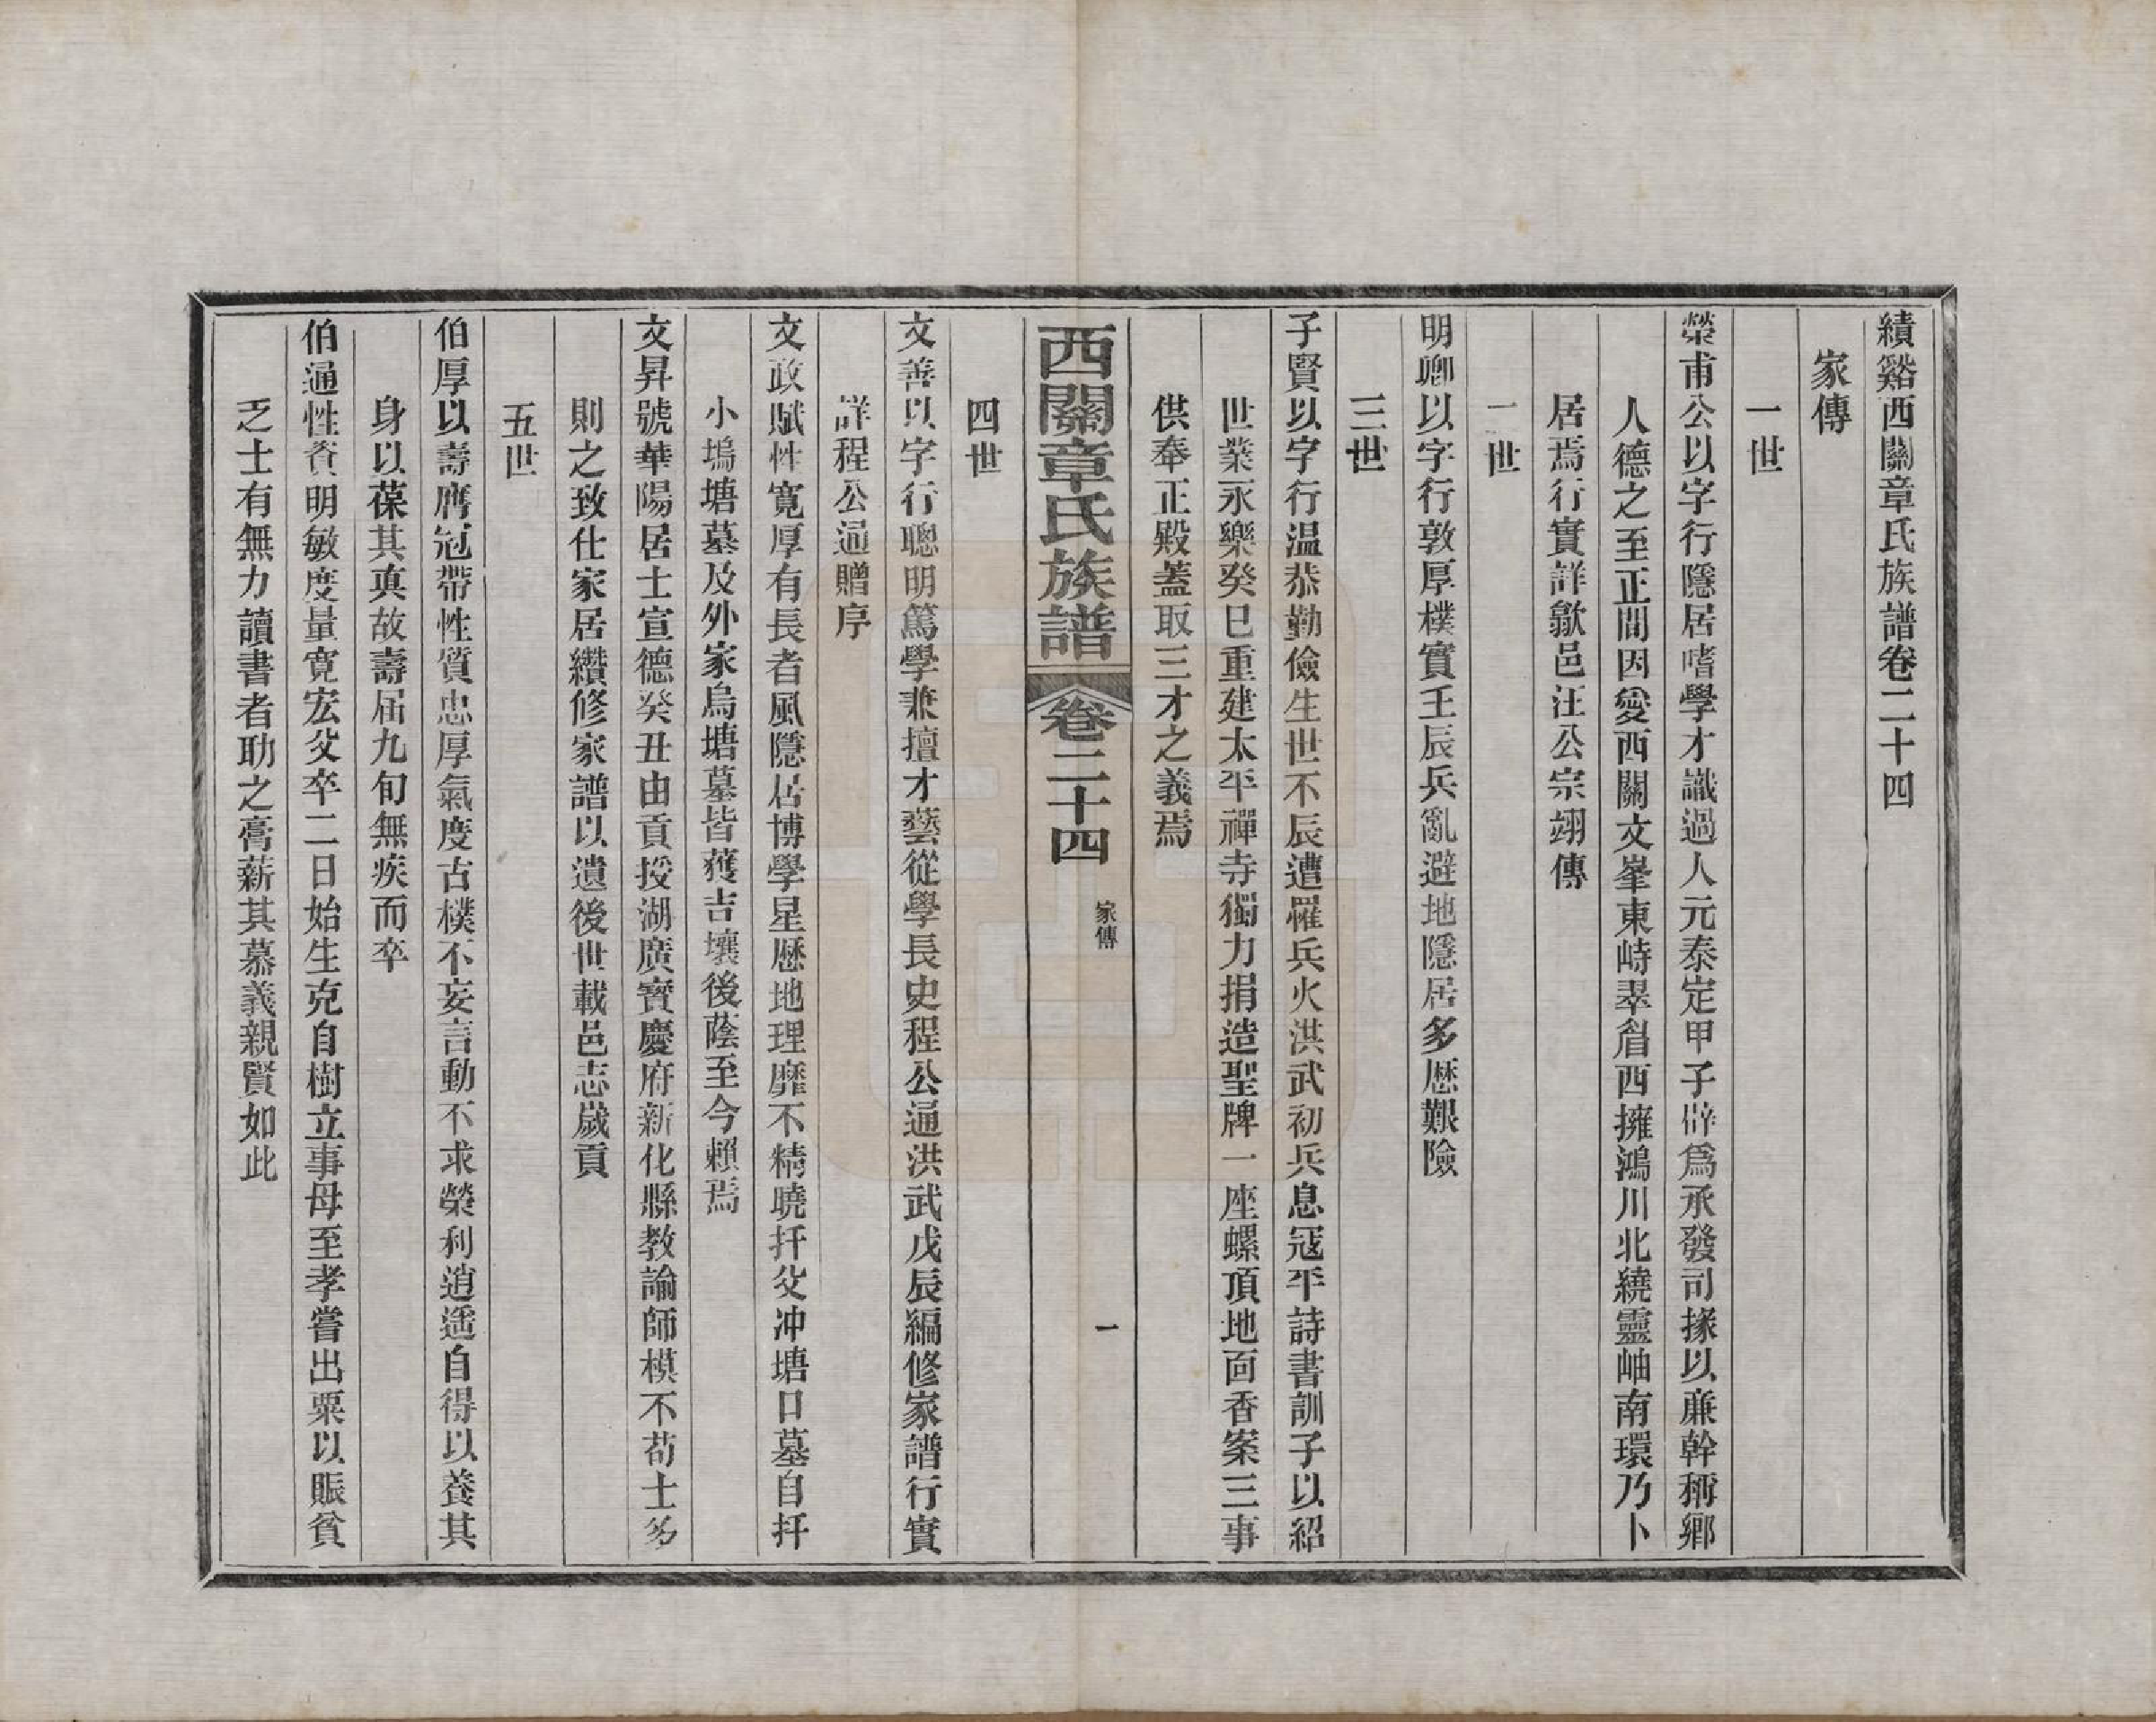 績谿西關章氏族譜卷二十四
家傳
一世
榮甫公以字行隱居嗜學才識過人元泰定甲子辟爲承發司掾以亷幹稱鄉
人德之至正間因愛西關文峯東峙翠眉西擁鴻川北繞靈岫南環乃卜
居焉行實詳歙邑汪公宗翊傳
二世
明卿以字行敦厚樸實壬辰兵亂避地隱居多歷艱險
三世
子賢以字行温恭勤儉生世不辰遭罹兵火洪武初兵息冦平詩書訓子以紹
世業永樂癸巳重建太平禪寺獨力捐造聖牌一座螺頂地面香案三事
供奉正殿蓋取三才之義焉
西關章氏族譜
卷二十四
家傳
一
四世
文善以字行聰明篤學兼擅才藝從學長史程公通洪武戊辰編修家譜行實
詳程公通贈序
文政賦性寬厚有長者風隱居博學星歷地理靡不精曉扦父冲塘口墓自扦
小塢塘墓及外家烏塘墓皆獲吉壤後蔭至今賴焉
文昇號華陽居士宣德癸丑由貢授湖廣寶慶府新化縣教諭師模不苟士多
則之致仕家居纘修家譜以遺後世載邑志歲貢
五世
伯厚以壽膺冠帶性質忠厚氣度古樸不妄言動不求榮利逍遙自得以養其
身以葆其真故壽届九旬無疾而卒
伯通性資明敏度量寬宏父卒二日始生克自樹立事母至孝嘗出粟以賑貧
乏士有無力讀書者助之膏薪其慕義親賢如此